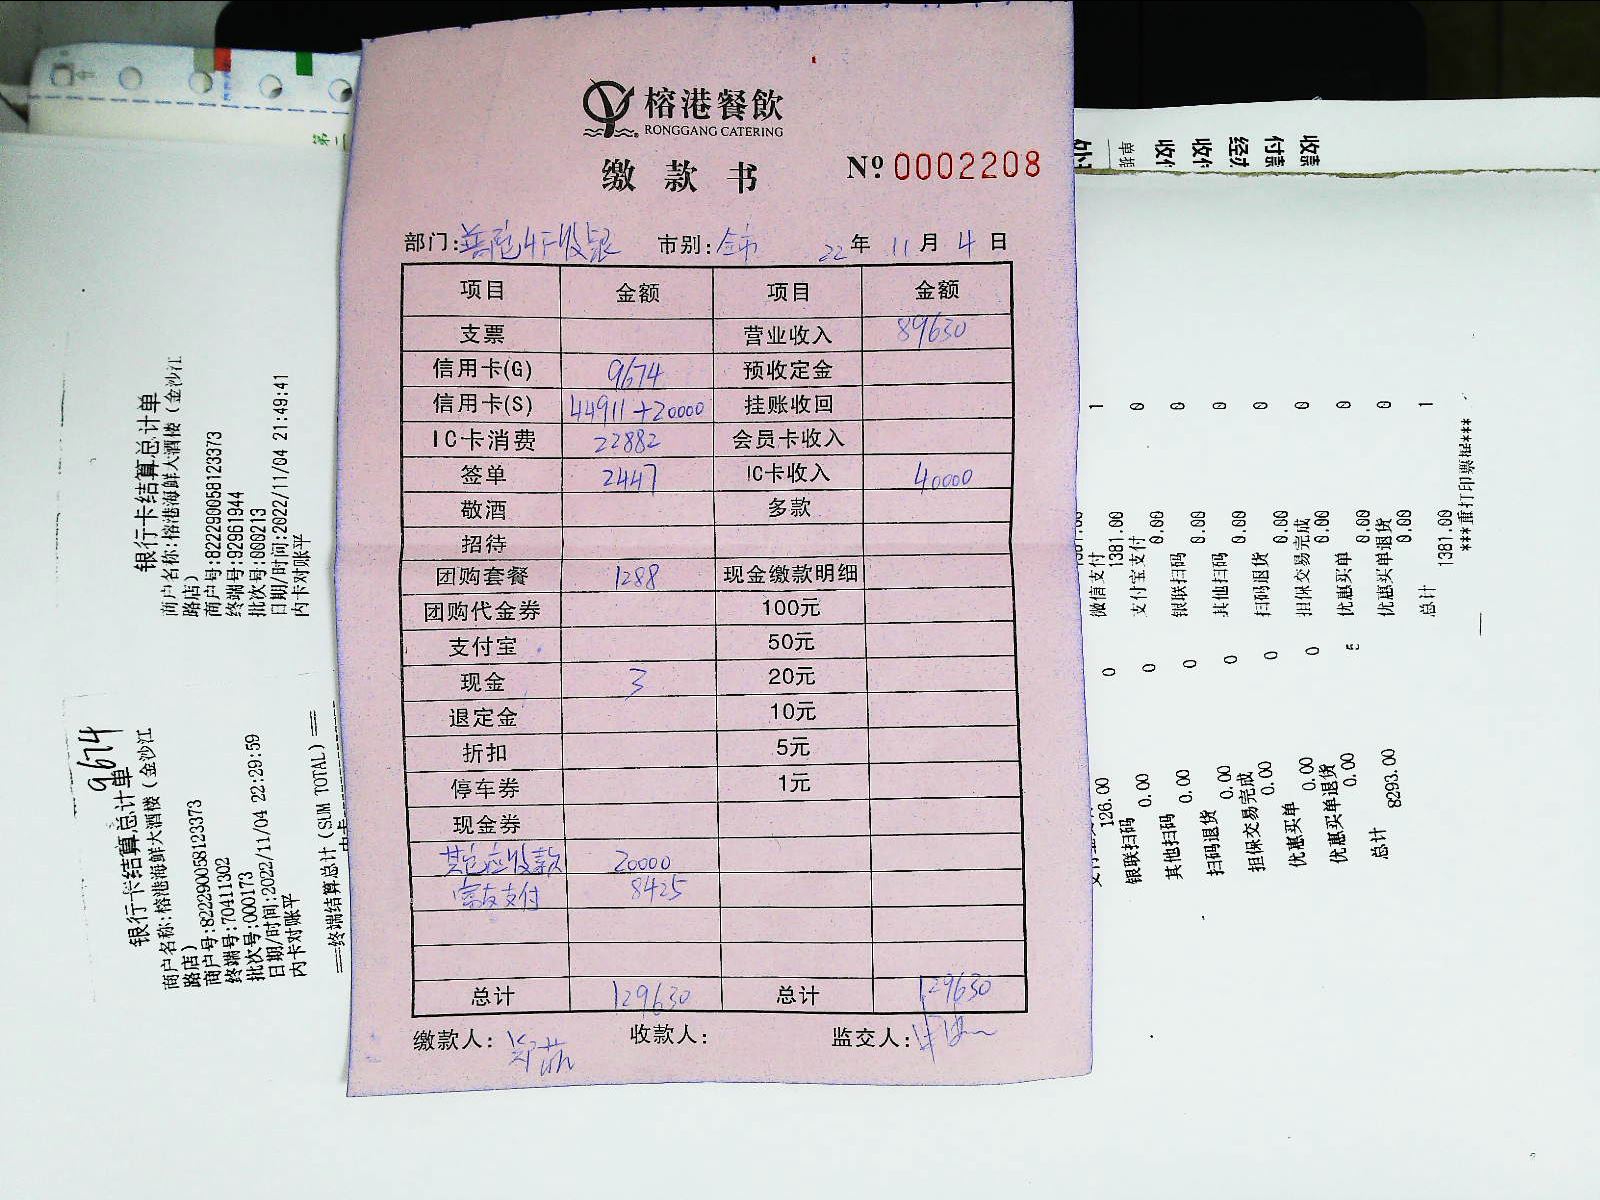 榕港餐飲
RONGGANG CATERING
缴款书
№ 0002208
部门:普陀4F收银 市别:全市 22年 11月 4日
项目 金额 项目 金额
支票 营业收入 89630
信用卡(G) 9674 预收定金
信用卡(S) 44911+20000 挂账收回
IC卡消费 22882 会员卡收入
签单 2447 IC卡收入 40000
敬酒 多款
招待
团购套餐 1288 现金缴款明细
团购代金券 100元
支付宝 50元
现金 3 20元
退定金 10元
折扣 5元
停车券 1元
现金券
其它应收款 20000
富友支付 8425
总计 129630 总计 129630
缴款人: 收款人: 监交人:
银行卡结算总计单
商户名称:榕港海鲜大酒楼(金沙江
路店)
商户号:822290058123373
终端号:92961944
批次号:000213
日期/时间:2022/11/04 21:49:41
内卡对账平
9674
银行卡结算总计单
商户名称:榕港海鲜大酒楼(金沙江
路店)
商户号:822290058123373
终端号:70411302
批次号:000173
日期/时间:2022/11/04 22:29:59
内卡对账平
==终端结算总计(SUM TOTAL)==
微信支付 1
1381.00
支付宝支付 0
0.00
银联扫码 0
0.00
其他扫码 0
0.00
扫码退货 0
0.00
担保交易完成 0
0.00
优惠买单 0
0.00
优惠买单退货 0
0.00
总计 1
1381.00
***重打印票据***
126.00
银联扫码 0
0.00
其他扫码 0
0.00
扫码退货 0
0.00
担保交易完成 0
0.00
优惠买单 0
0.00
优惠买单退货 0
0.00
总计 5
8293.00